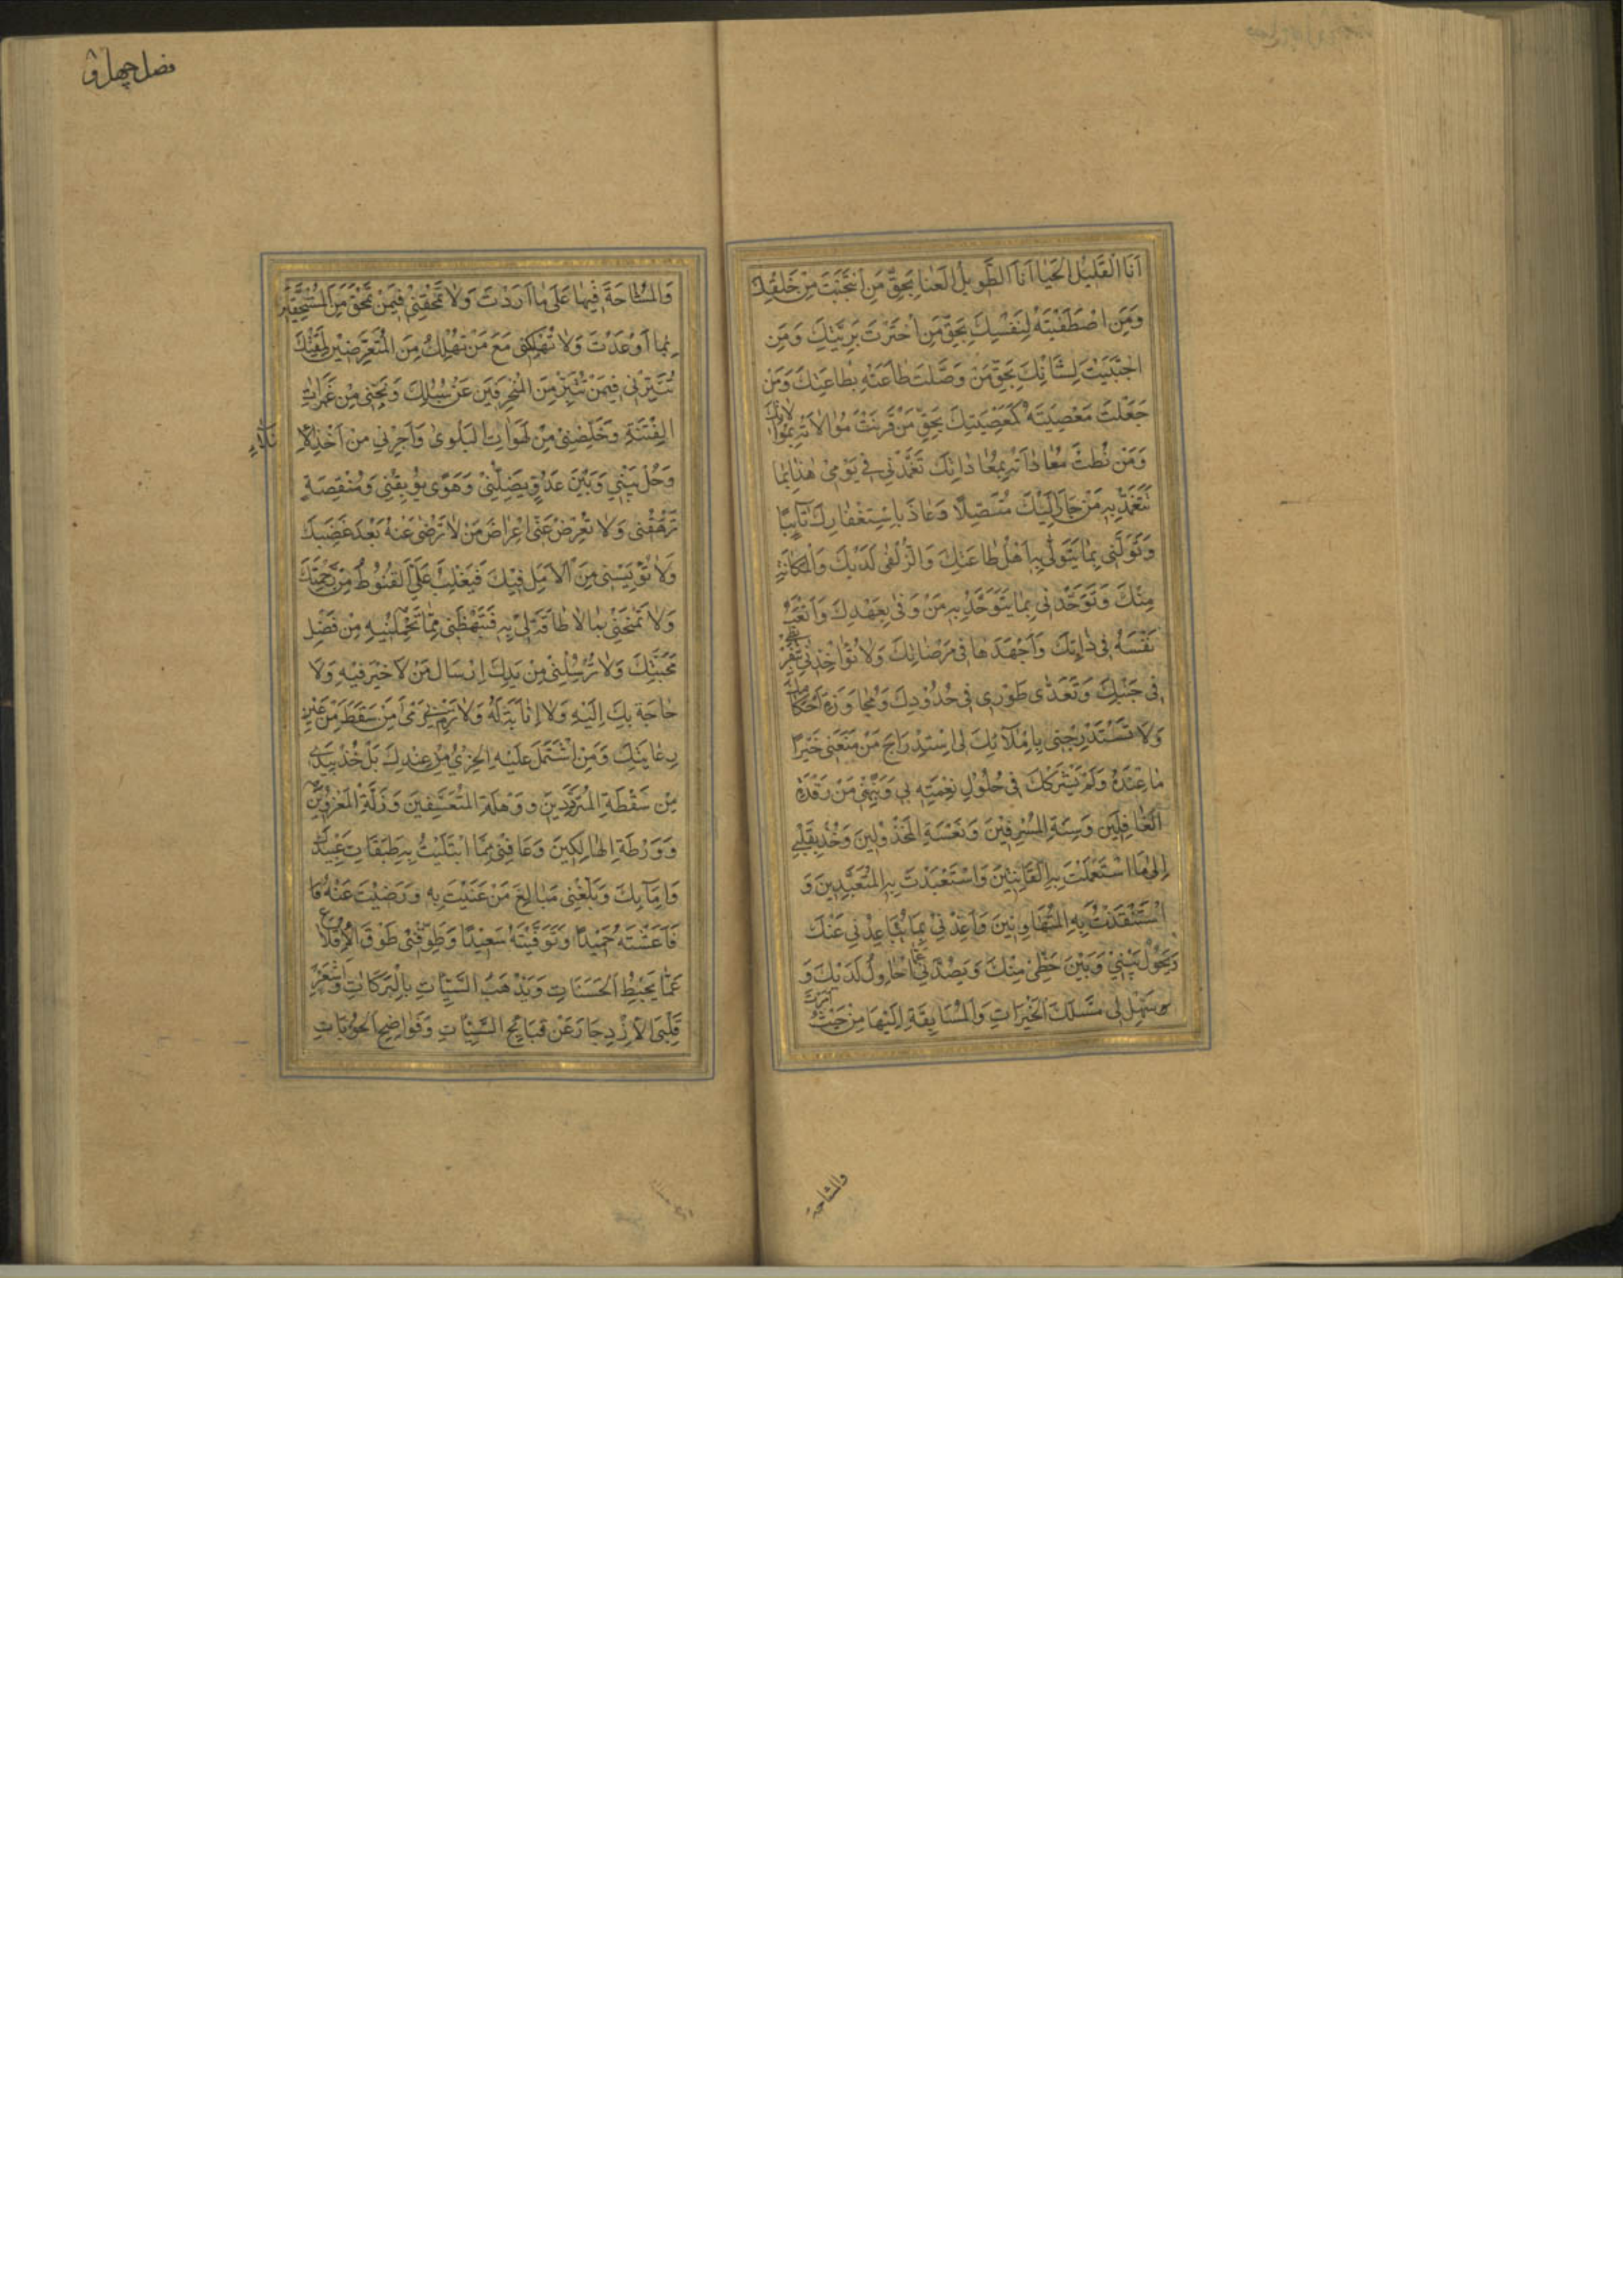 اَنَا الْقَلِيلُ الْحَيَا اَنَا الطَّوِيلُ الْعَنَا بِحَقِّ مَنِ انْتَجَبْتَ مِنْ خَلْقِكَ
وَمَنِ اصْطَفَيْتَهُ لِنَفْسِكَ بِحَقِّ مَنِ اخْتَرْتَ بَرِيَّتِكَ وَمَنِ
اجْتَبَيْتَ لِشَانِكَ بِحَقِّ مَنْ وَصَّلْتَ طَاعَتَهُ بِطَاعَتِكَ وَمَنْ
جَعَلْتَ مَعْصِيَتَهُ كَمَعْصِيَتِكَ بِحَقِّ مَنْ قَرَنْتَ مُوَالَاتَهُ بِمُوَالَاتِكَ
وَمَنْ نُطْتَ مُعَادَاتَهُ بِمُعَادَاتِكَ تَغَمَّدْنِي فِي يَوْمِي هٰذَا بِمَا
تَتَغَمَّدُ بِهِ مَنْ جَارَ اِلَيْكَ مُتَنَصِّلًا وَعَاذَ بِاسْتِغْفَارِكَ تَآئِبًا
وَتَوَلَّنِي بِمَا يَتَوَلّٰى بِهِ اَهْلُ طَاعَتِكَ وَالزُّلْفٰى لَدَيْكَ وَالْمَكَانَةِ
مِنْكَ وَتَوَحَّدْنِي بِمَا يَتَوَحَّدُ بِهِ مَنْ وَفٰى بِعَهْدِكَ وَاَتْعَبَ
نَفْسَهُ فِي ذَاتِكَ وَاَجْهَدَهَا فِي مَرْضَاتِكَ وَلَا تُؤَاخِذْنِي بِتَفْرِيطِي
فِي جَنْبِكَ وَتَعَدِّي طَوْرِي فِي حُدُودِكَ وَمُجَاوَزَةِ اَحْكَامِكَ
وَلَا تَسْتَدْرِجْنِي بِاِمْلَآئِكَ لِي اسْتِدْرَاجَ مَنْ مَنَعَنِي خَيْرَ
مَا عِنْدَهُ وَلَمْ يَشْرَكْكَ فِي حُلُولِ نِعْمَتِهِ بِي وَنَبِّهْنِي مِنْ رَقْدَةِ
الْغَافِلِينَ وَسِنَةِ الْمُسْرِفِينَ وَنَعْسَةِ الْمَخْذُولِينَ وَخُذْ بِقَلْبِي
اِلٰى مَا اسْتَعْمَلْتَ بِهِ الْقَانِتِينَ وَاسْتَعْبَدْتَ بِهِ الْمُتَعَبِّدِينَ وَ
اسْتَنْقَذْتَ بِهِ الْمُتَهَاوِنِينَ وَاَعِذْنِي مِمَّا يُبَاعِدُنِي عَنْكَ
وَيَحُولُ بَيْنِي وَبَيْنَ حَظِّي مِنْكَ وَيَصُدُّنِي عَمَّا اُحَاوِلُ لَدَيْكَ وَ
سَهِّلْ لِي مَسْلَكَ الْخَيْرَاتِ وَالْمُسَابَقَةِ اِلَيْهَا مِنْ حَيْثُ اَمَرْتَ
والمشاحة
وَالْمُشَاحَّةَ فِيهَا عَلٰى مَا اَرَدْتَ وَلَا تَمْحَقْنِي فِيمَنْ تَمْحَقُ مِنَ الْمُسْتَخِفِّينَ
بِمَا اَوْعَدْتَ وَلَا تُهْلِكْنِي مَعَ مَنْ تُهْلِكُ مِنَ الْمُتَعَرِّضِينَ لِمَقْتِكَ
تُتَبِّرْنِي فِيمَنْ تُتَبِّرُ مِنَ الْمُنْحَرِفِينَ عَنْ سُبُلِكَ وَنَجِّنِي مِنْ غَمَرَاتِ
الْفِتْنَةِ وَخَلِّصْنِي مِنْ لَهَوَاتِ الْبَلْوٰى وَاَجِرْنِي مِنْ اَخْذِ الْاِ
وَحُلْ بَيْنِي وَبَيْنَ عَدُوٍّ يُضِلُّنِي وَهَوًى يُوبِقُنِي وَمَنْقَصَةٍ
تَرْهَقُنِي وَلَا تُعْرِضْ عَنِّي اِعْرَاضَ مَنْ لَا تَرْضٰى عَنْهُ بَعْدَ غَضَبِكَ
وَلَا تُؤْيِسْنِي مِنَ الْاَمَلِ فِيكَ فَيَغْلِبَ عَلَيَّ الْقُنُوطُ مِنْ رَحْمَتِكَ
وَلَا تَمْنَحْنِي بِمَا لَا طَاقَةَ لِي بِهِ فَتَبْهَظَنِي مِمَّا تُحَمِّلُنِيهِ مِنْ فَضْلِ
مَحَبَّتِكَ وَلَا تُرْسِلْنِي مِنْ يَدِكَ اِرْسَالَ مَنْ لَا خَيْرَ فِيهِ وَلَا
حَاجَةَ بِكَ اِلَيْهِ وَلَا اِنَابَةَ لَهُ وَلَا تَرْمِ بِي رَمْيَ مَنْ سَقَطَ مِنْ عَيْنِ
رِعَايَتِكَ وَمَنِ اشْتَمَلَ عَلَيْهِ الْخِزْيُ مِنْ عِنْدِكَ بَلْ خُذْ بِيَدِي
مِنْ سَقْطَةِ الْمُتَرَدِّينَ وَوَهْلَةِ الْمُتَعَسِّفِينَ وَزَلَّةِ الْمَغْرُورِينَ
وَوَرْطَةِ الْهَالِكِينَ وَعَافِنِي مِمَّا ابْتَلَيْتَ بِهِ طَبَقَاتِ عَبِيدِكَ
وَاِمَآئِكَ وَبَلِّغْنِي مَبَالِغَ مَنْ عَنَيْتَ بِهِ وَرَضِيتَ عَنْهُ
فَاَعَشْتَهُ حَمِيدًا وَتَوَفَّيْتَهُ سَعِيدًا وَطَوِّقْنِي طَوْقَ الْاِقْلَاعِ
عَمَّا يُحْبِطُ الْحَسَنَاتِ وَيَذْهَبُ بِالْبَرَكَاتِ وَاَشْعِرْ
قَلْبِيَ الْاِزْدِجَارَ عَنْ قَبَائِحِ السَّيِّئَاتِ وَفَوَاضِحِ الْحَوْبَاتِ
فصل چهل و